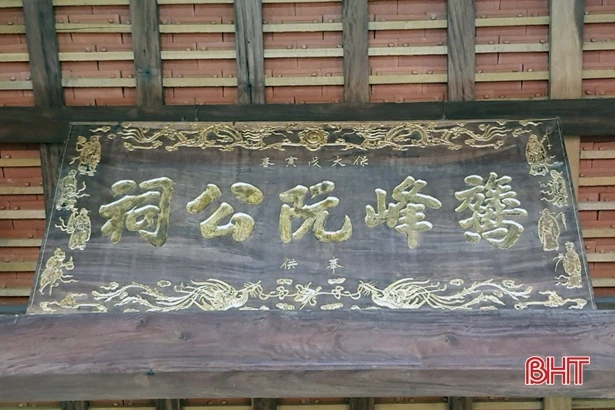 保大戊寅春
峰阮公祠
奉供
BHT